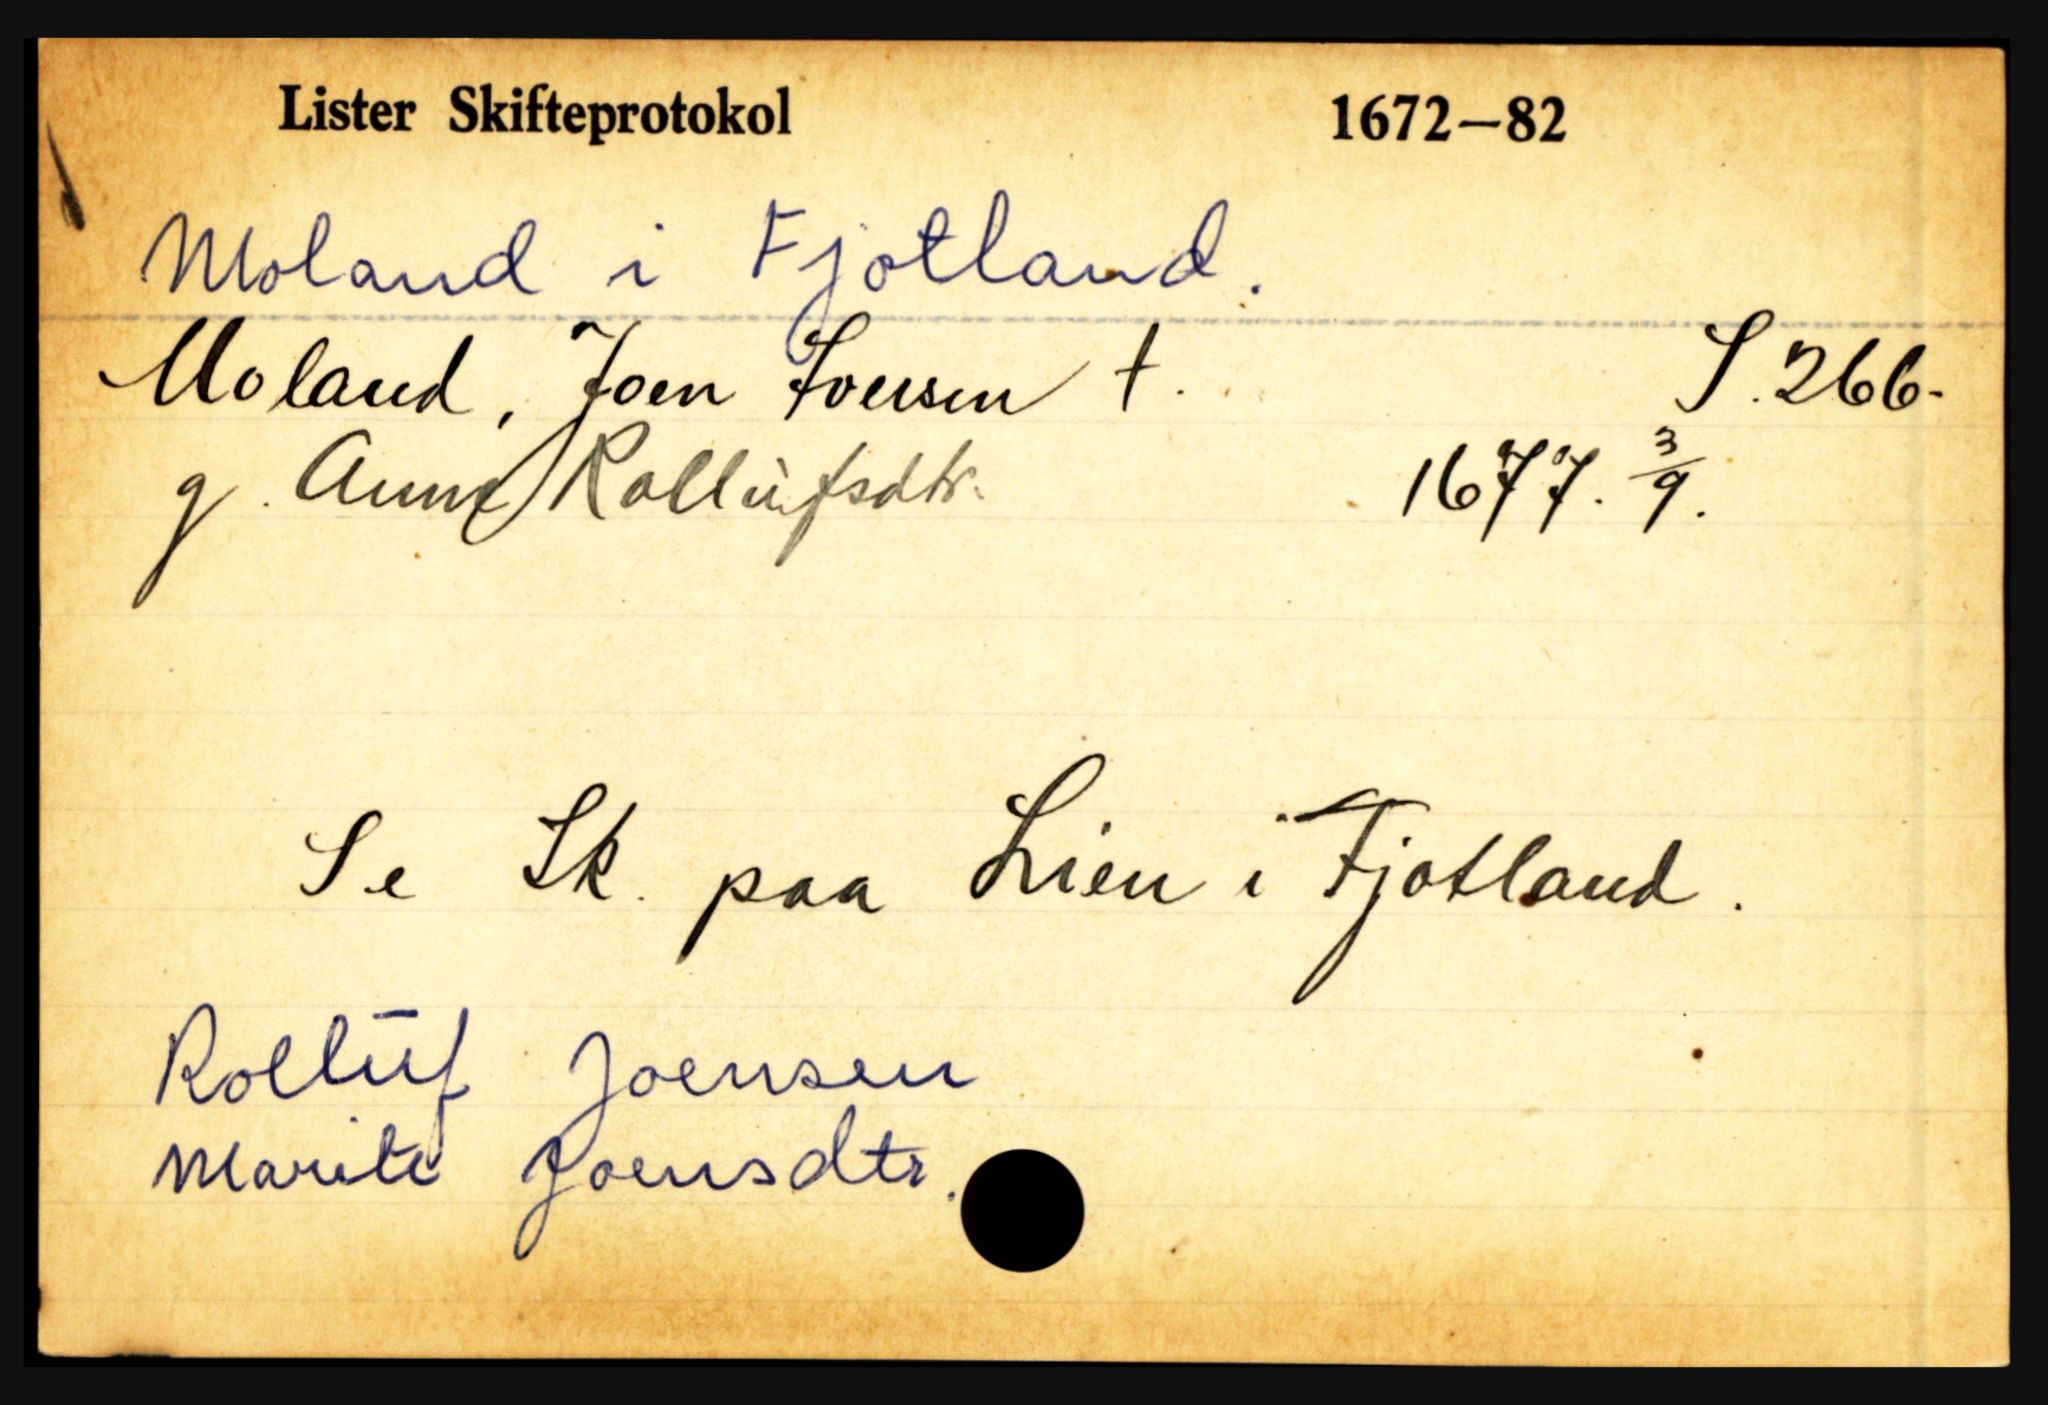 Lister Skifteprotokol 1672—82
Moland i Fjotland.
Moland, Joen Iversen †. S. 266-
g. Anne Rollufsdtr. 1677. 3/9.
Se Sk. paa Lien i Fjotland.
Rolluf Joensen
Marite Joensdtr.